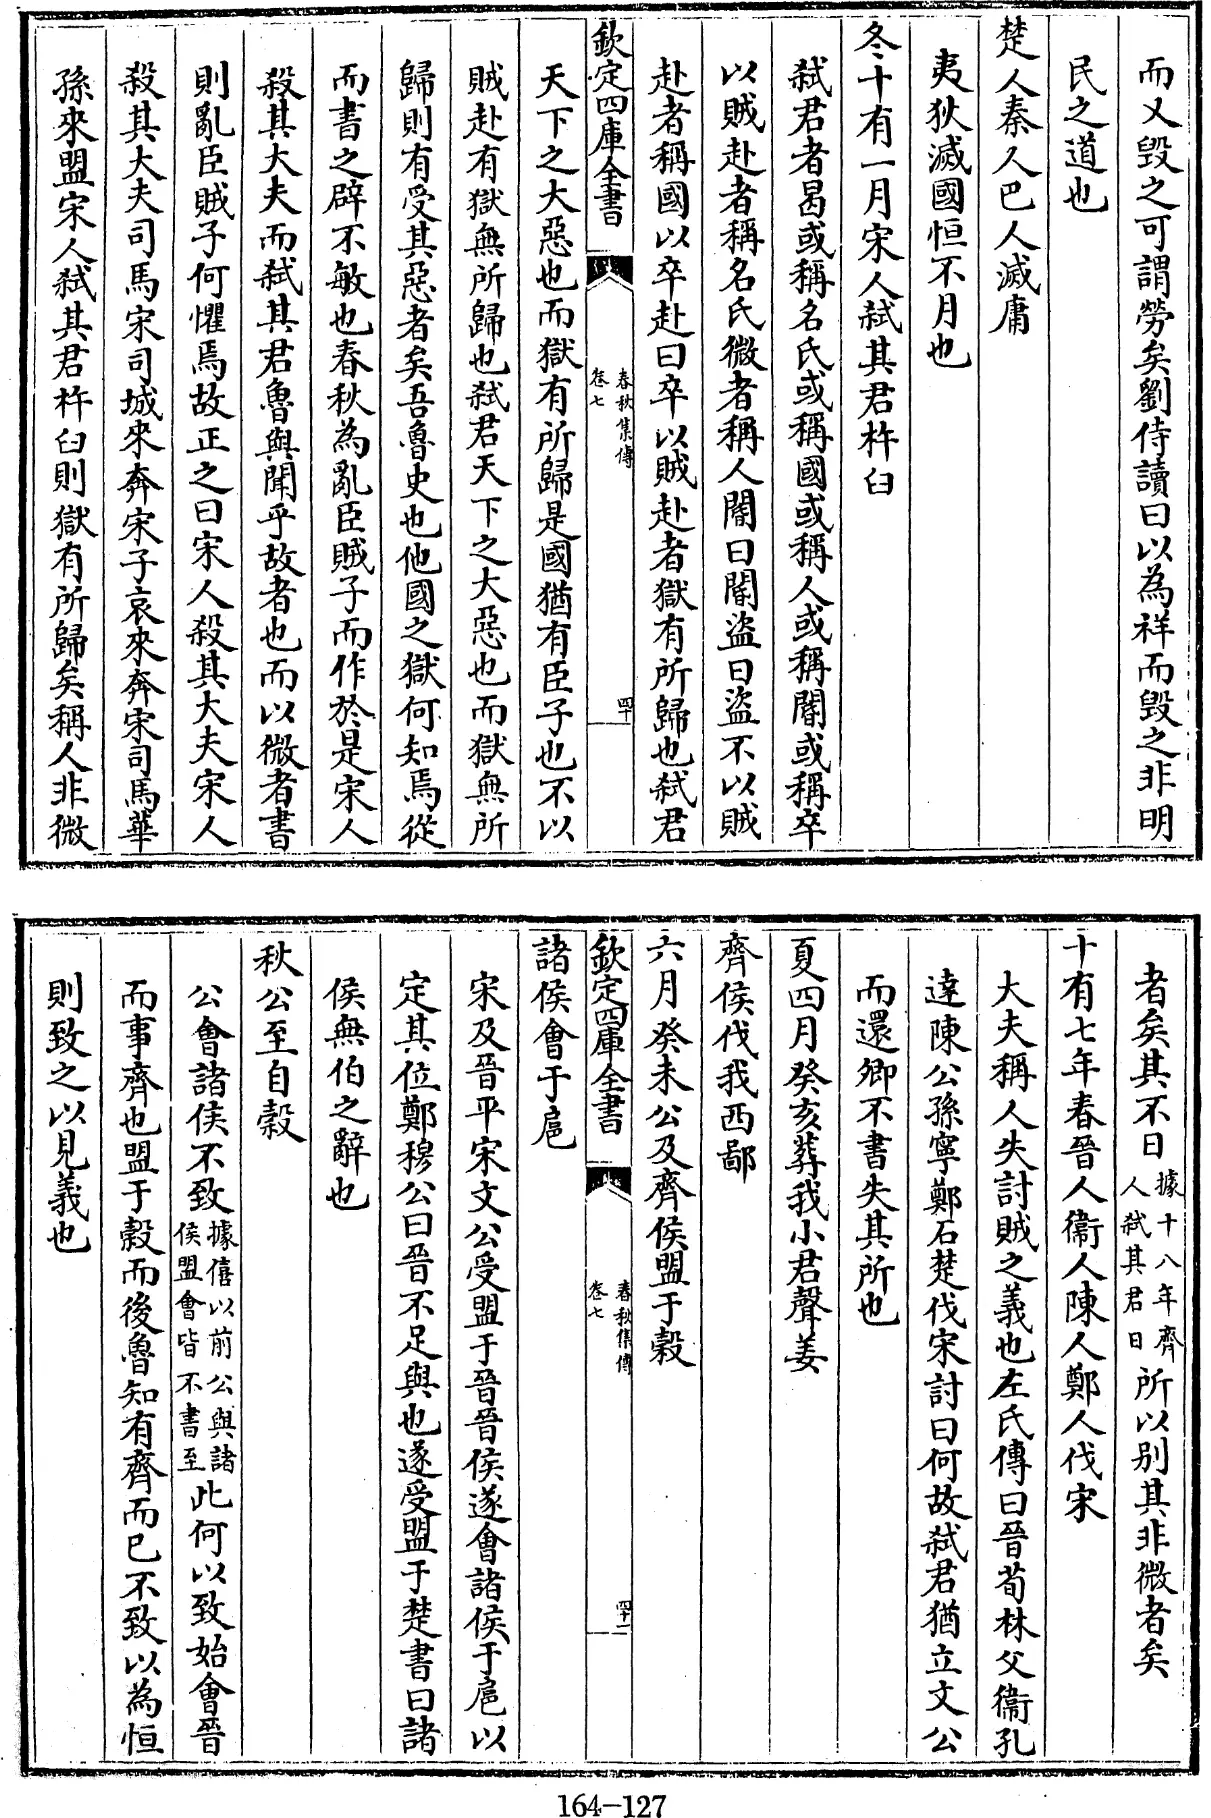 而又毀之可謂勞矣劉侍讀曰以為祥而毀之非明
民之道也
楚人秦人巴人滅庸
夷狄滅國恒不月也
冬十有一月宋人弑其君杵臼
弑君者曷或稱名氏或稱國或稱人或稱閽或稱卒
以賊赴者稱名氏微者稱人閽曰閽盜曰盜不以賊
赴者稱國以卒赴曰卒以賊赴者獄有所歸也弑君
欽定四庫全書
春秋集傳
卷七
四十
天下之大惡也而獄有所歸是國猶有臣子也不以
賊赴有獄無所歸也弑君天下之大惡也而獄無所
歸則有受其惡者矣吾魯史也他國之獄何知焉從
而書之辟不敏也春秋為亂臣賊子而作於是宋人
殺其大夫而弑其君魯與聞乎故者也而以微者書
則亂臣賊子何懼焉故正之曰宋人殺其大夫宋人
殺其大夫司馬宋司城來奔宋子哀來奔宋司馬華
孫來盟宋人弑其君杵臼則獄有所歸矣稱人非微
者矣其不日據十八年齊人弑其君日所以别其非微者矣
十有七年春晉人衞人陳人鄭人伐宋
大夫稱人失討賊之義也左氏傳曰晉荀林父衞孔
達陳公孫寧鄭石楚伐宋討曰何故弑君猶立文公
而還卿不書失其所也
夏四月癸亥葬我小君聲姜
齊侯伐我西鄙
六月癸未公及齊侯盟于穀
欽定四庫全書
春秋集傳
卷七
四十一
諸侯會于扈
宋及晉平宋文公受盟于晉晉侯遂會諸侯于扈以
定其位鄭穆公曰晉不足與也遂受盟于楚書曰諸
侯無伯之辭也
秋公至自穀
公會諸侯不致據僖以前公與諸侯盟會皆不書至此何以致始會晉
而事齊也盟于穀而後魯知有齊而已不致以為恒
則致之以見義也
164-127